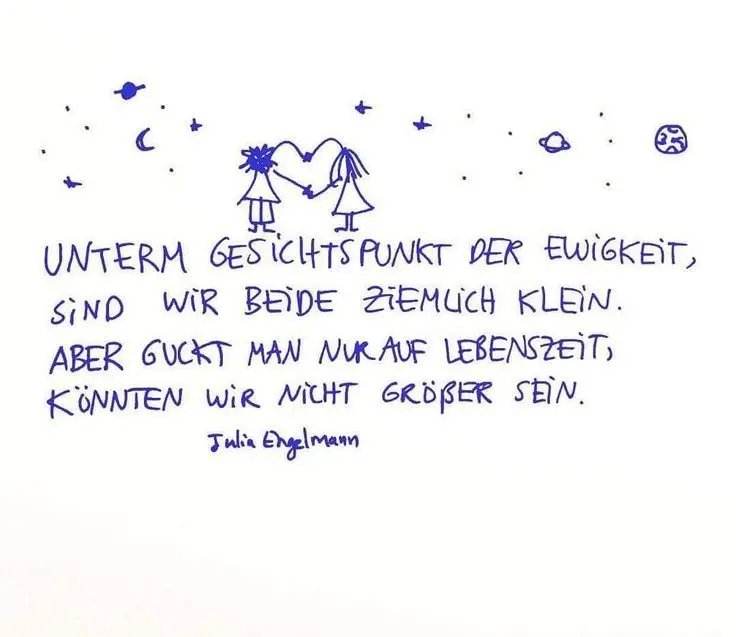 UNTERM GESICHTSPUNKT DER EWIGKEIT,
SIND WIR BEIDE ZIEMLICH KLEIN.
ABER GUCKT MAN NUR AUF LEBENSZEIT,
KÖNNTEN WIR NICHT GRÖßER SEIN.
Julia Engelmann